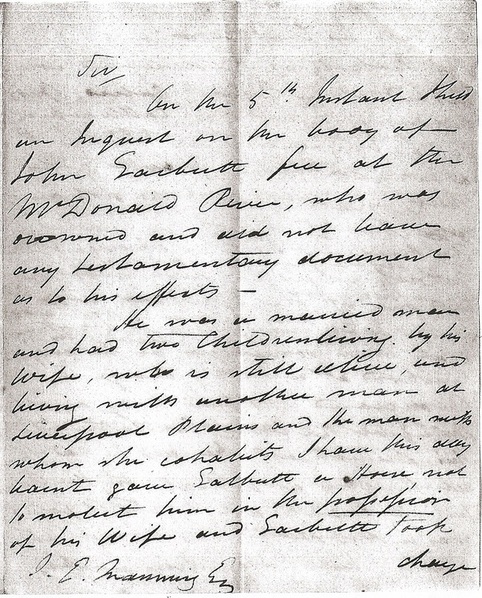 Sir
On the 5th Instant I held
an Inquest on the body of
John Garbutt free at the
McDonald River, who was
drowned and did not leave
any testamentary document
as to his effects –
He was a married man
and had two Children living by his
Wife, who is still alive, and
living with another man at
Liverpool Plains and the man with
whom she cohabits I have this day
learnt gave Garbutt a Horse not
to molest him in the possession
of his Wife and Garbutt took
J. E. Manning Esq charge